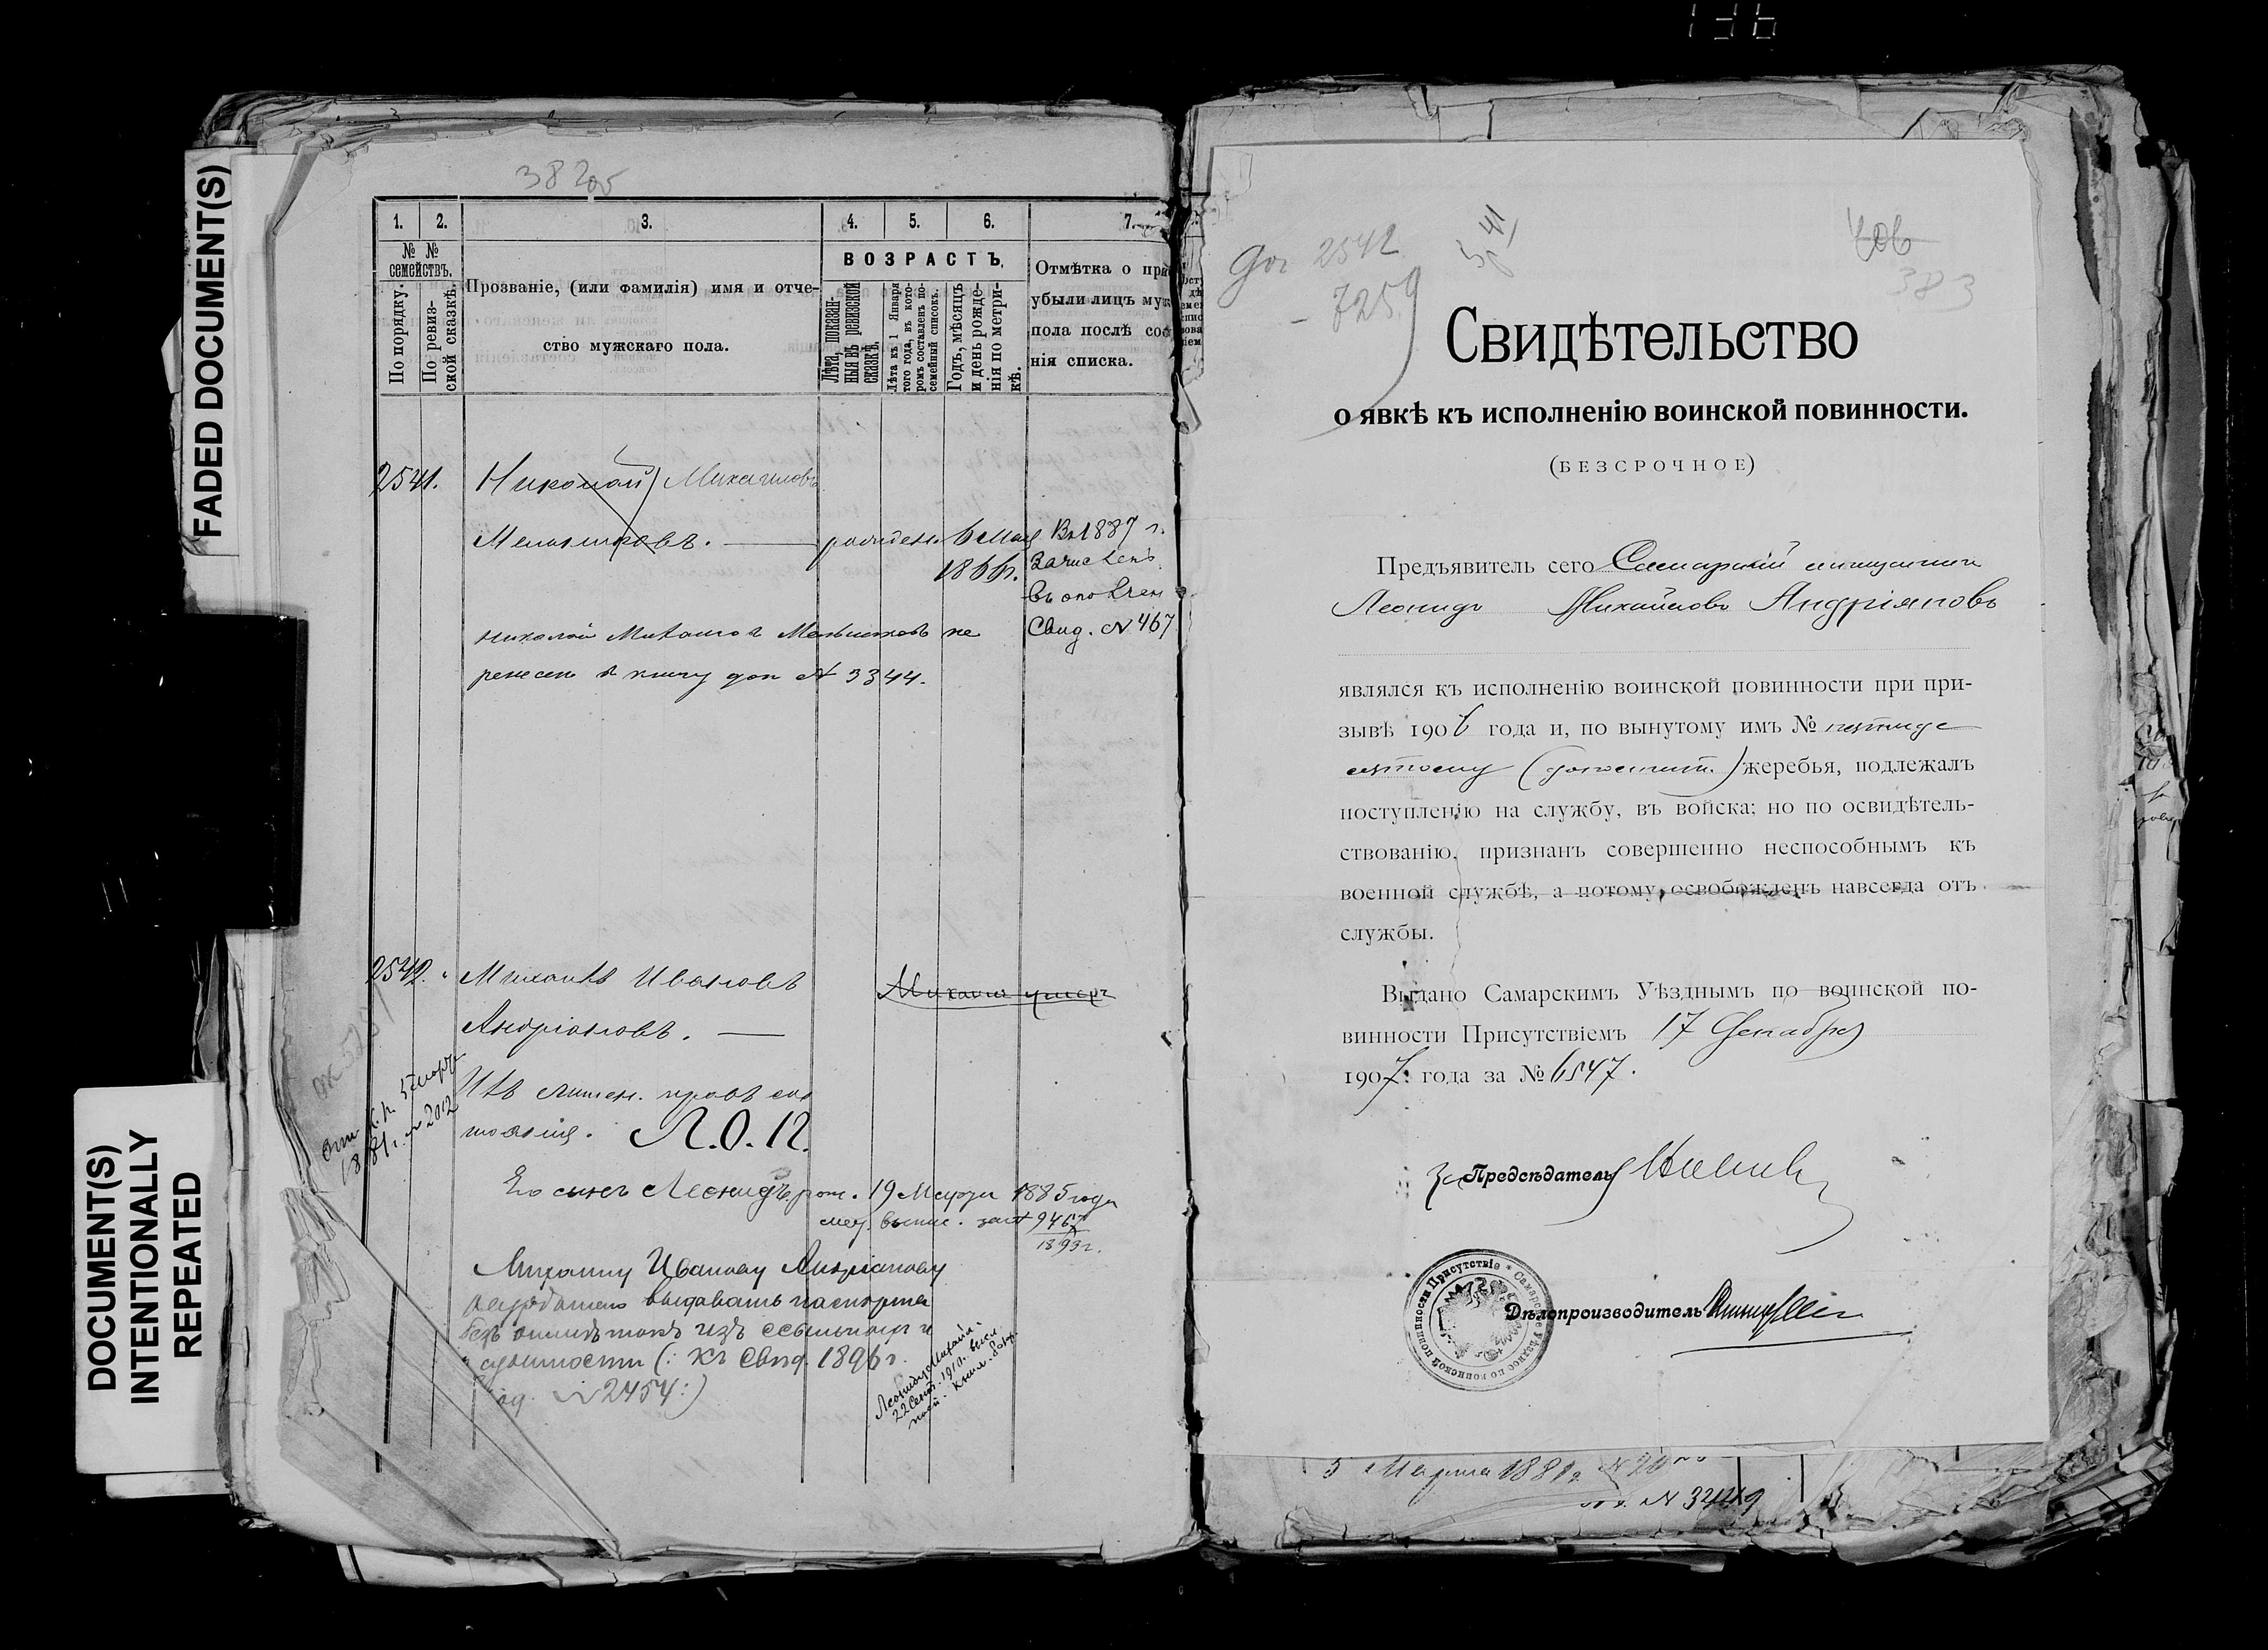 FADED DOCUMENT(S)
DOCUMENT(S)
INTENTIONALLY
REPEATED
38205
1. 2. 3. 4. 5. 6. 7.
№ №
семействъ.
По порядку.
По ревиз-
ской сказкѣ.
Прозваніе, (или фамилія) имя и отче-
ство мужскаго пола.
ВОЗРАСТЪ.
Лѣта, показан-
ныя въ ревизской
сказкѣ.
Лѣта къ 1 Января
того года, въ кото-
ромъ составленъ по-
семейный списокъ.
Годъ, мѣсяцъ
и день рожде-
нія по метри-
кѣ.
Отмѣтка о при
убыли лицъ муж
пола послѣ сос
нія списка.
2541. Николай Михаиловъ
Мельниковъ. — рожденъ 6 Мая
1866г.
Въ 1887 г.
Зачисленъ
въ ополчен
Свид. № 467
Николай Михаилов Мельников пе
ренесен в книгу доп № 3344.
2542. Михаилъ Ивановъ
Андріановъ. —
Михаил умеръ
Изъ лишен. правъ сос
тоянія. Л.О.П.
от К.П. 5 марта
1881 г. № 2012
Его сынъ Леонидъ рож. 19 Марта 1885 года
мет. выпис. за № 9467
1893г.
Михаилу Иванову Андріанову
выдавать паспорта
безъ отмѣтокъ изъ ссыльных и
судимости (: Къ Свид. 1896 г.
№ 2454 :)
Леониду Михайл.
22 Сент. 1910 г.
Доп 2542
- 7259
41
383
Свидѣтельство
о явкѣ къ исполненію воинской повинности.
(БЕЗСРОЧНОЕ)
Предъявитель сего Самарскій мѣщанинъ
Леонидъ Михайловъ Андріяновъ
являлся къ исполненію воинской повинности при при-
зывѣ 1906 года и, по вынутому имъ № пятиде
сятому жеребья, подлежалъ
поступленію на службу, въ войска; но по освидѣтель-
ствованію, признанъ совершенно неспособнымъ къ
военной службѣ, а потому, освобожденъ навсегда отъ
службы.
Выдано Самарскимъ Уѣзднымъ по воинской по-
винности Присутствіемъ 17 Декабря
1907. года за № 6547.
За Предсѣдатель
Дѣлопроизводитель
Самарское Уѣздное по воинской повинности Присутствіе
5 Марта 1881 г № 20
№ 3449